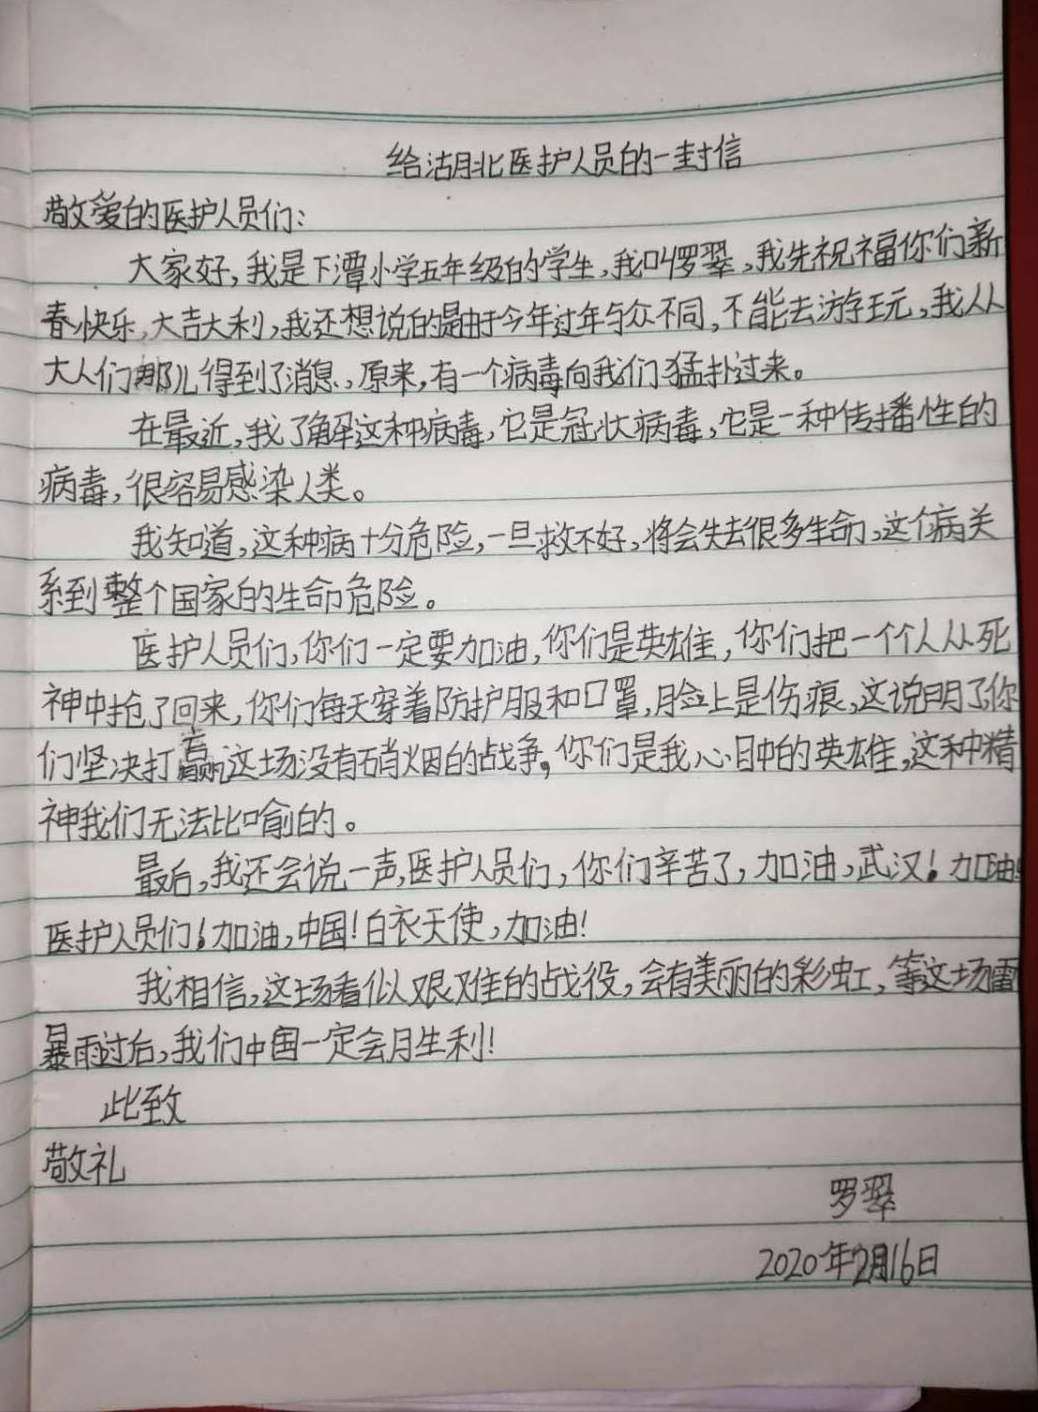 给湖北医护人员的一封信
敬爱的医护人员们：
大家好，我是下潭小学五年级的学生，我叫罗翠，我先祝福你们新
春快乐，大吉大利，我还想说的是由于今年过年与众不同，不能去游玩，我从
大人们那儿得到了消息，原来，有一个病毒向我们猛扑过来。
在最近，我了解这种病毒，它是冠状病毒，它是一种传播性的
病毒，很容易感染人类。
我知道，这种病十分危险，一旦救不好，将会失去很多生命，这个病关
系到整个国家的生命危险。
医护人员们，你们一定要加油，你们是英雄，你们把一个个人从死
神中抢了回来，你们每天穿着防护服和口罩，脸上是伤痕，这说明了你
们坚决打赢这场没有硝烟的战争，你们是我心目中的英雄，这种精
神我们无法比喻的。
最后，我还会说一声，医护人员们，你们辛苦了，加油，武汉！加油！
医护人员们！加油，中国！白衣天使，加油！
我相信，这场看似艰难的战役，会有美丽的彩虹，等这场雷
暴雨过后，我们中国一定会胜利！
此致
敬礼
罗翠
2020年2月16日